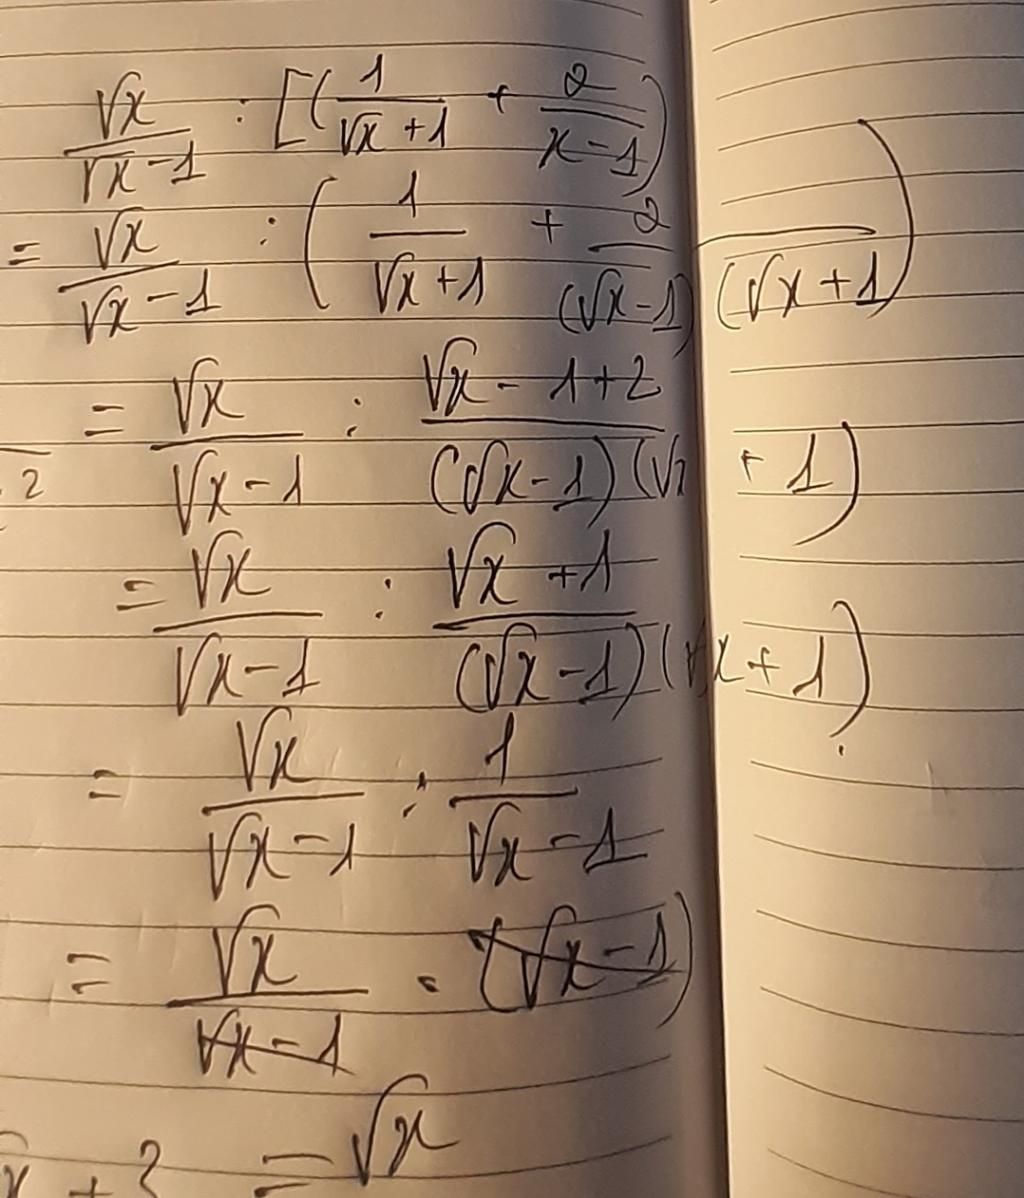 √x/(√x-1) : [(1/(√x+1) + 2/(x-1))
= √x/(√x-1) : (1/(√x+1) + 2/((√x-1)(√x+1)))
= √x/(√x-1) : (√x-1+2)/((√x-1)(√x+1))
2
= √x/(√x-1) : (√x+1)/((√x-1)(√x+1))
= √x/(√x-1) : 1/(√x-1)
= √x/(√x-1) . (√x-1)
= √x
x + 2